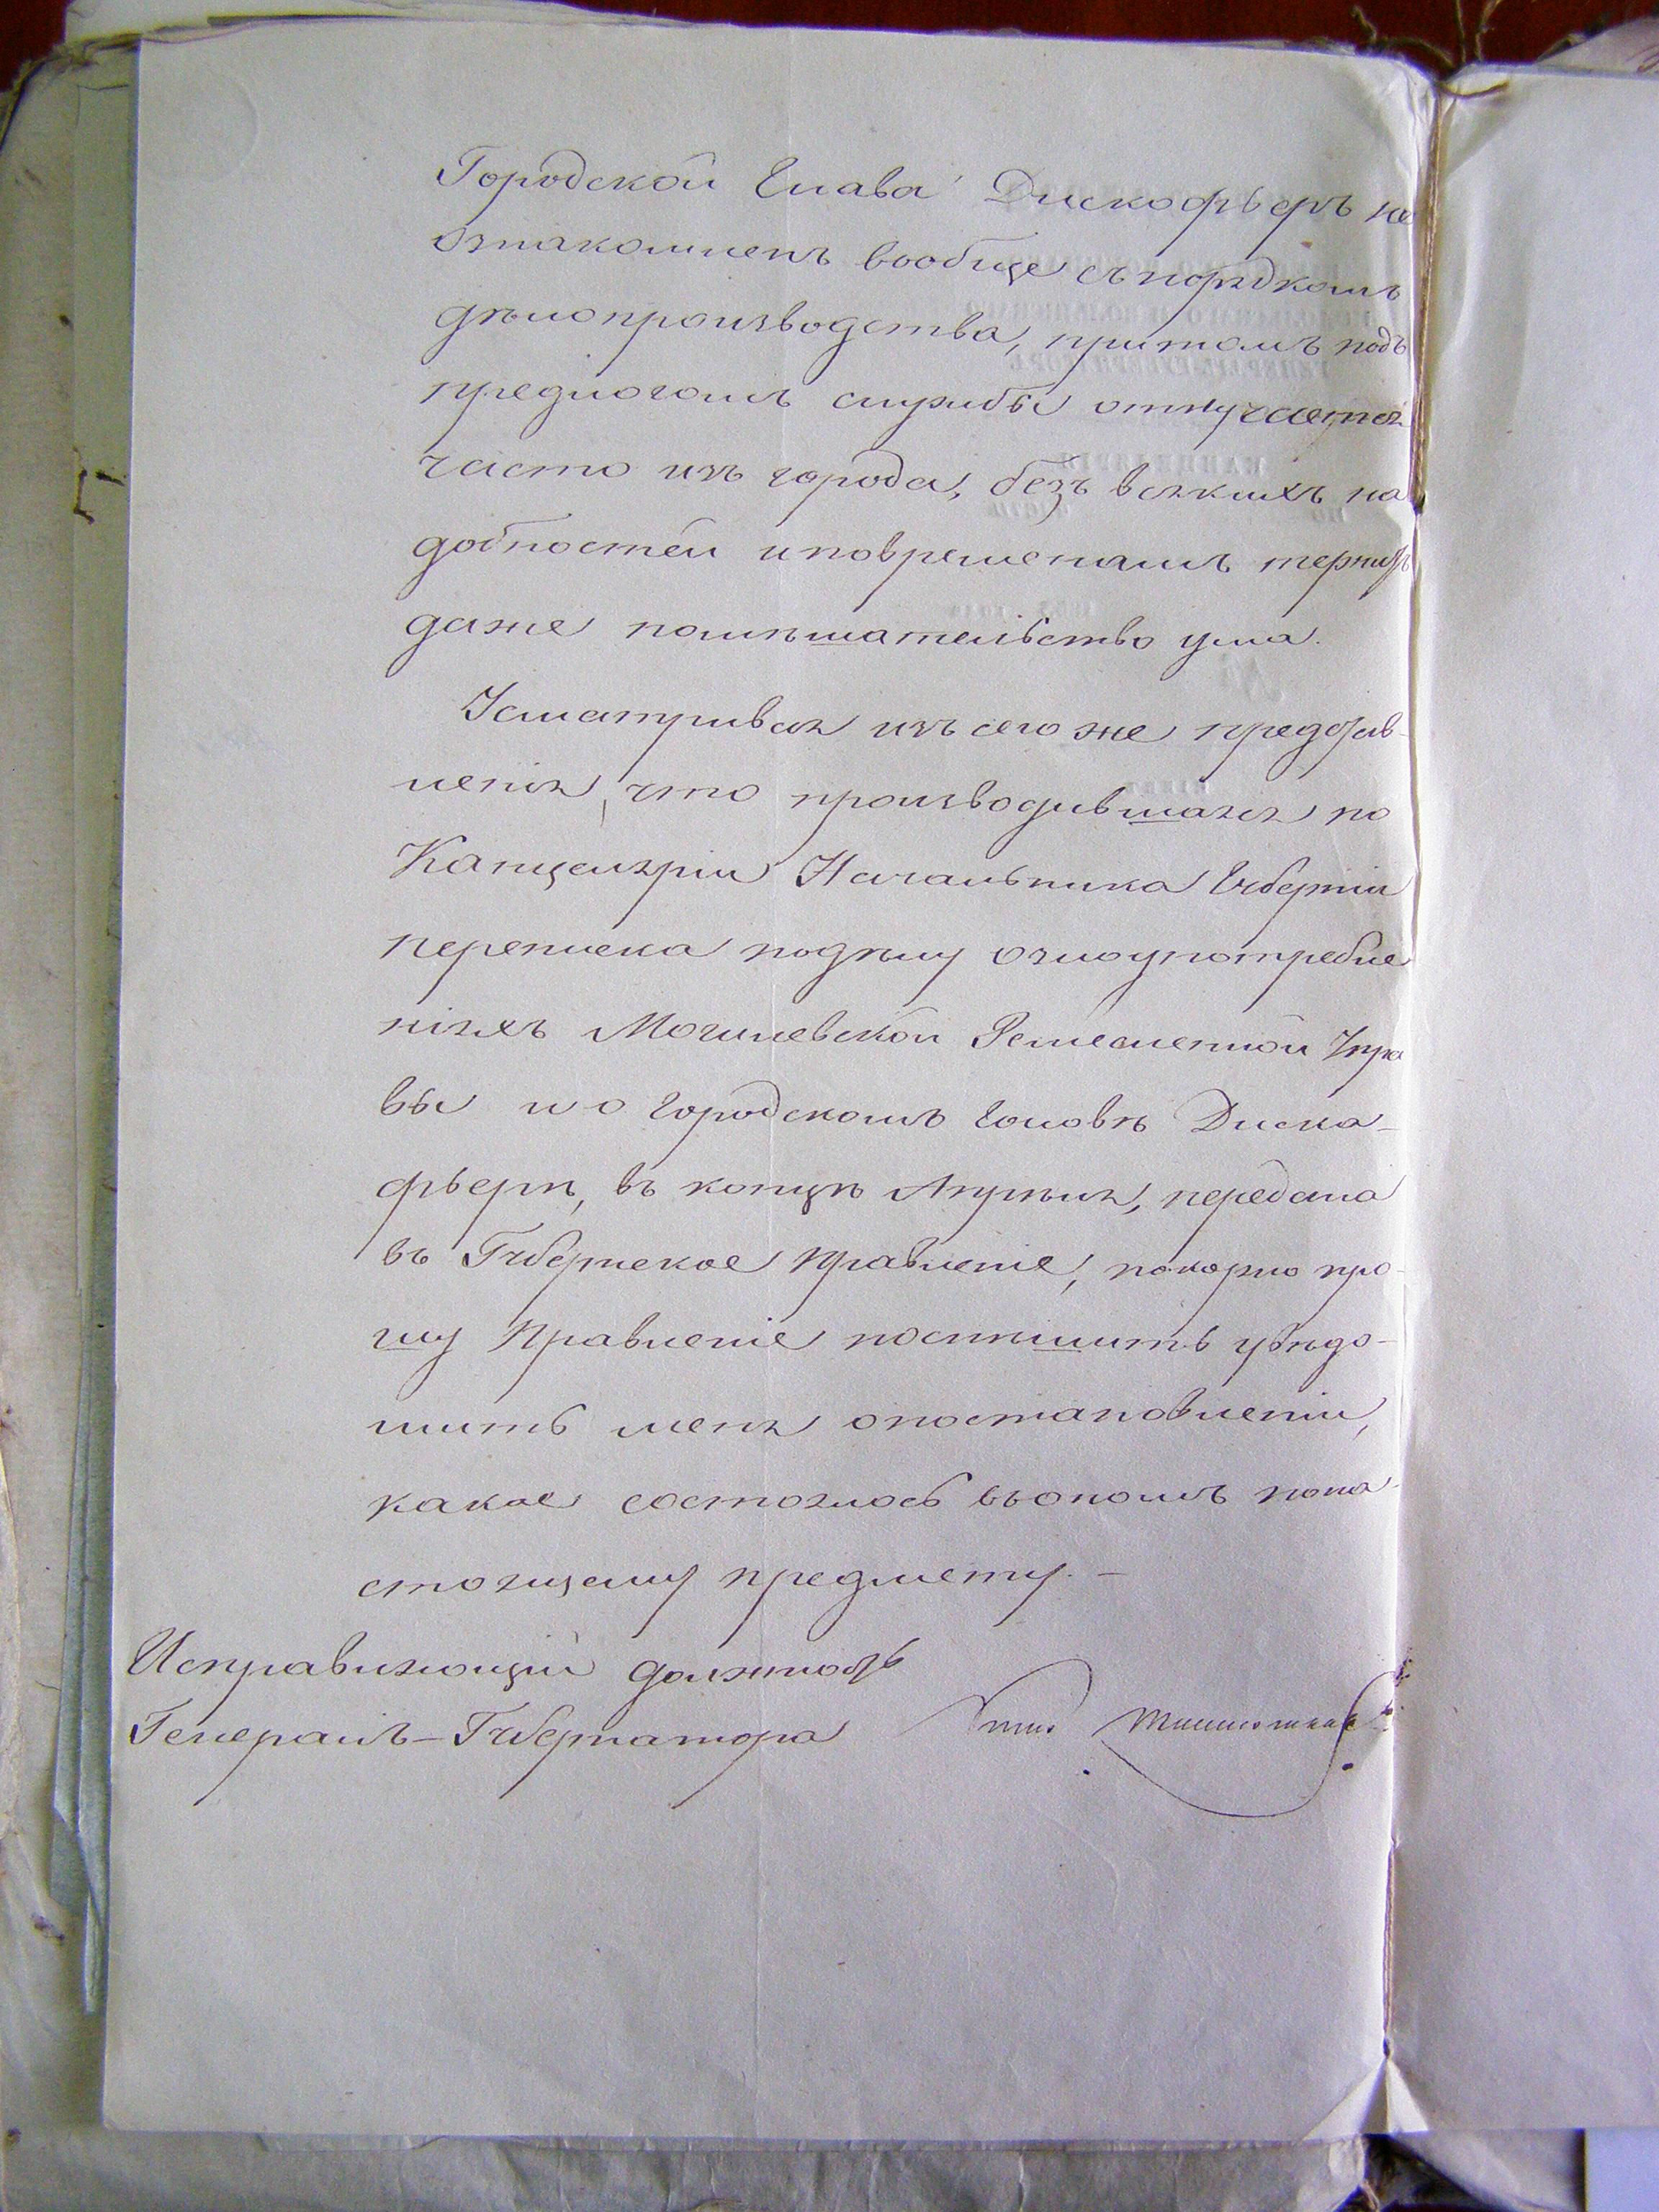 Городской Глава Дискофьеръ не
ознакомленъ вообще съ порядкомъ
дѣлопроизводства, притомъ подъ
предлогомъ службы отлучается
часто изъ города, безъ всякихъ на
добностей и повременамъ терпитъ
даже помѣшательство ума.
Усматривая изъ сего же представ-
ленія, что производившаяся по
Канцеляріи Начальника Губерніи
переписка подѣлу озлоупотребле
ніяхъ Могилевской Ремесленной Упра
вы и о Городскомъ Головѣ Диска-
фьерѣ, въ концѣ Апрѣля, передана
въ Губернское Правленіе, покорно про-
шу Правленіе поспѣшить увѣдо-
мить меня опостановленіи,
какое состоялось въономъ пона-
стоящему предмету. –
Исправляющій должность
Генералъ-Губернатора